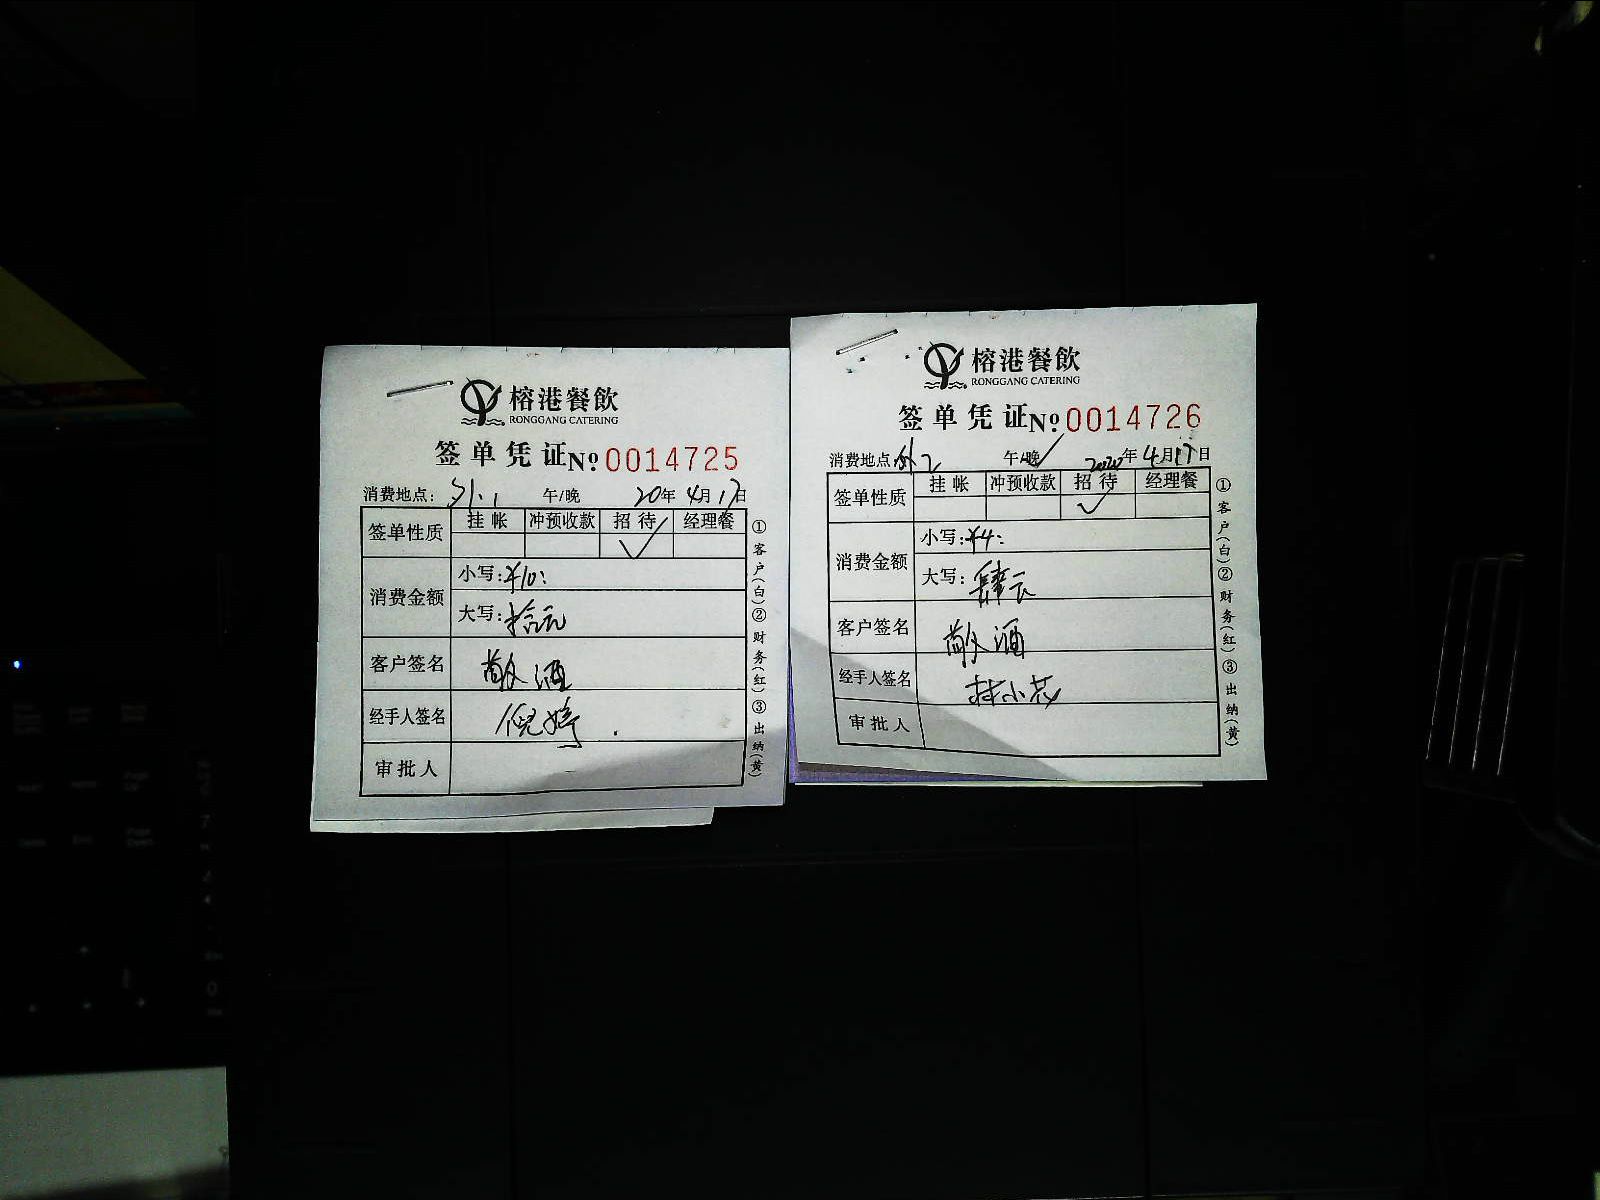 榕港餐飲
RONGGANG CATERING
签单凭证 No 0014725
消费地点: 外.1 午/晚 20年4月17日
签单性质 挂帐 冲预收款 招待 经理餐
✓
消费金额 小写:¥10:
大写:拾元
客户签名 敬酒
经手人签名 倪婷
审批人
①客户(白)②财务(红)③出纳(黄)
榕港餐飲
RONGGANG CATERING
签单凭证 No 0014726
消费地点: 外2 午/晚 2020年4月17日
签单性质 挂帐 冲预收款 招待 经理餐
✓
消费金额 小写:¥4:
大写:肆元
客户签名 敬酒
经手人签名 林小芯
审批人
①客户(白)②财务(红)③出纳(黄)